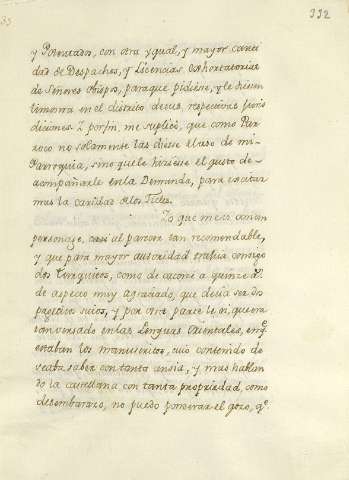 332
y Potentados, con otra ygual, y mayor canti
dad de Despachos, y Licencias Exhortatorias
de Señores Obispos, para que pidiese, y le hiciesen
limosna en el distrito de sus respectivas juris
diciones. I por fin me suplicó, que como Par
roco no solamente las diese el uso de mi
Parroquia, sino que le hiciese el gusto de
acompañarle en la Demanda, para excitar
mas la caridad de los Fieles.
Yo que me vi con un
personage, casi al parecer tan recomendable,
y que para mayor autoridad trahia consigo
dos Turquitos, como de catorce a quince a.s
de aspecto muy agraciado, que decia ser dos
pagecitos suios, y por otra parte le oi, que era
tan versado en las Lenguas Orientales, en q.e
estaban los manuscritos, cuio contenido de
seaba saber con tanta ansia, y mas hablan
do la castellana con tanta propriedad, como
desembarazo, no puedo ponderar el gozo, q.e